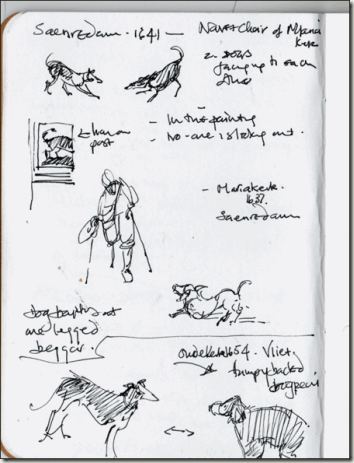 Saenredam · 1641 — Nave & Choir of Maria
Kerk
2 dogs
facing to each
other
— In this painting
— No-one is looking out.
← han on
post
— Mariakerk.
1637.
Saenredam
dog barking at
one legged
beggar.
1654 · Vliet,
humpy backed
dog